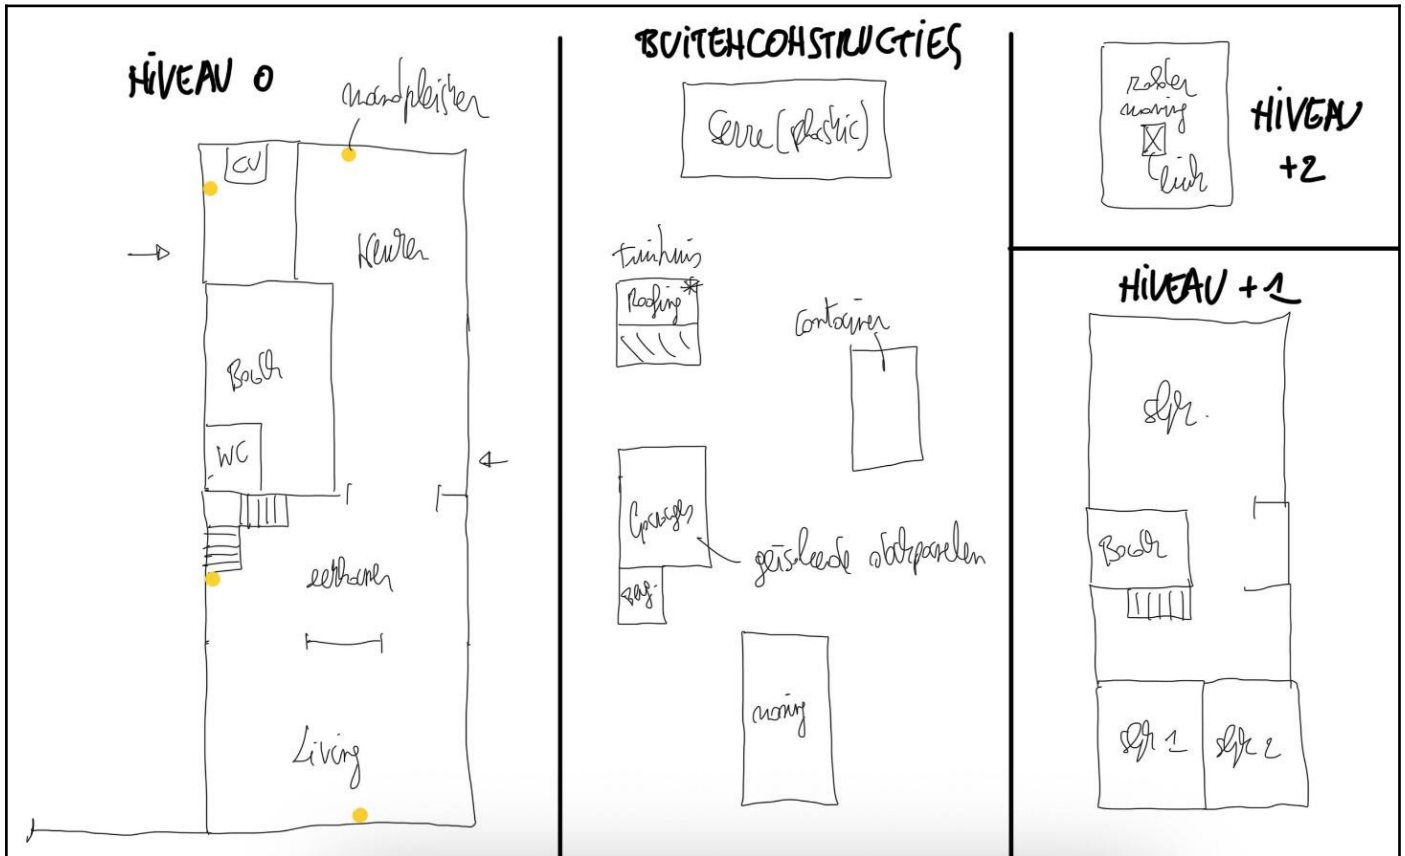 NIVEAU 0
wandpleister
CV
Keuken
Badk
WC
eetkamer
Living
BUITENCONSTRUCTIES
Serre (plastic)
tuinhuis
Roofing *
container
Garage
geïsoleerde dakpanelen
Berg.
woning
zolder
woning
luik
NIVEAU
+2
NIVEAU +1
slpk.
Badk
slpk 1
slpk 2